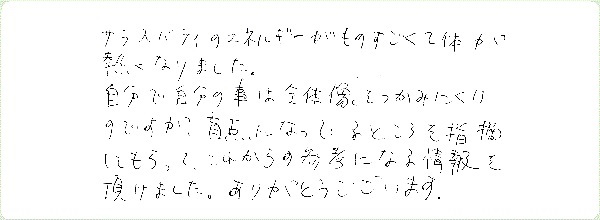 サラスバティのエネルギーがものすごくて体が
熱くなりました。
自分で自分の事は全体像、とつかみにくい
のですが、盲点になっているところを指摘
してもらって、これからの参考になる情報を
頂けました。ありがとうございます。